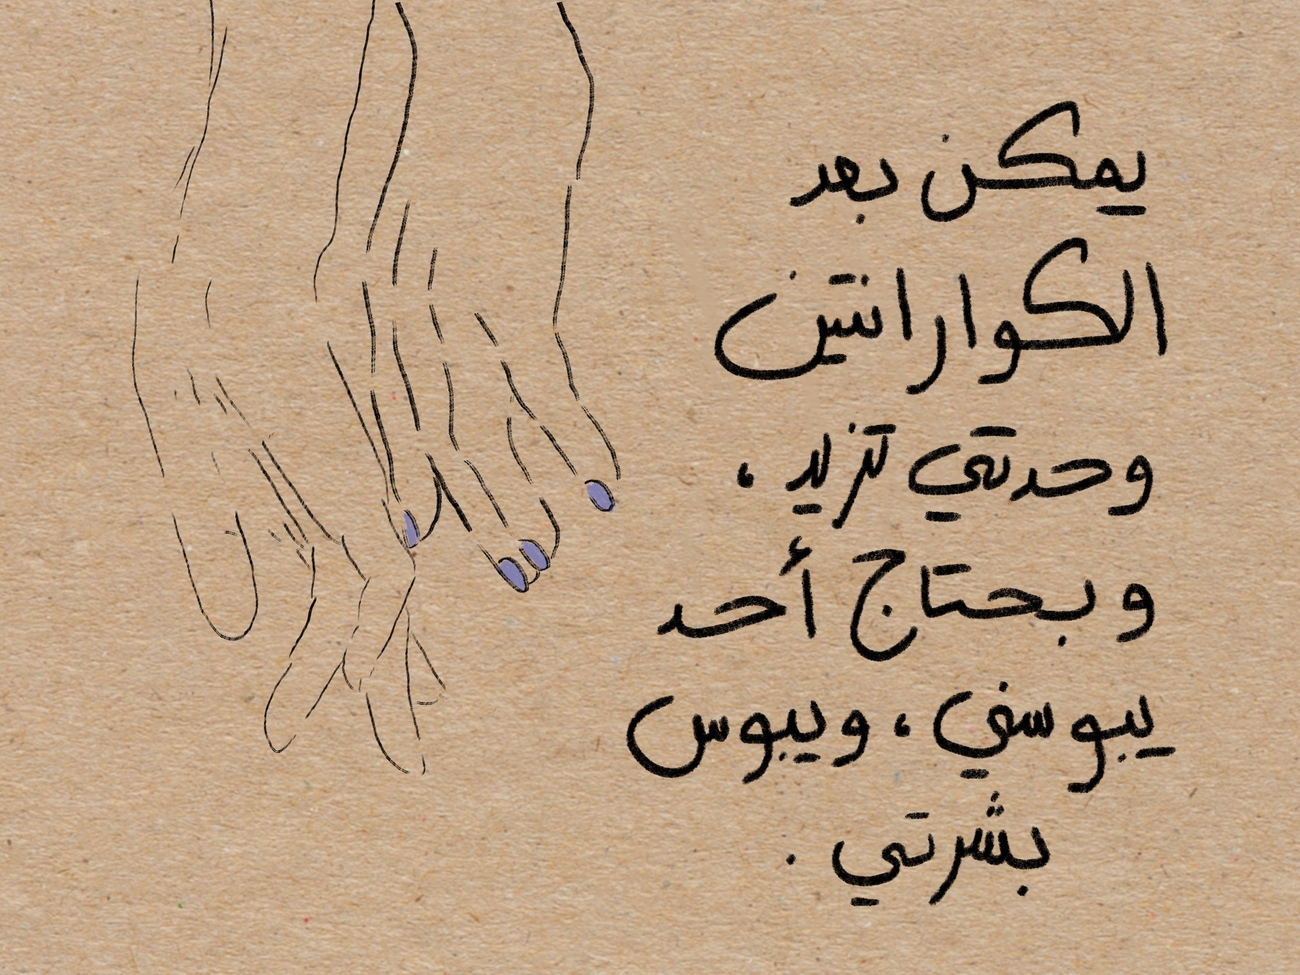 يمكن بعد
الكوارانتين
وحدتي تزيد ،
وبحتاج أحد
يبوسني ، ويبوس
بشرتي .